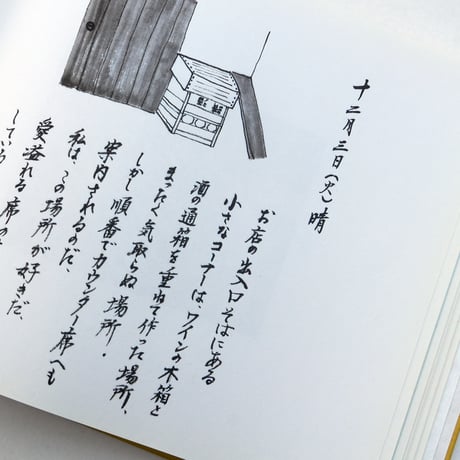 十二月三日(火)晴
お店の出入口そばにある
小さなコーナーは、ワインの木箱と
酒の通箱を重ねて作った場所、
まったく気取らぬ場所・
しかし順番でカウンター席へも
案内されるのだ、
私は、この場所が好きだ、
愛溢れる席の
している